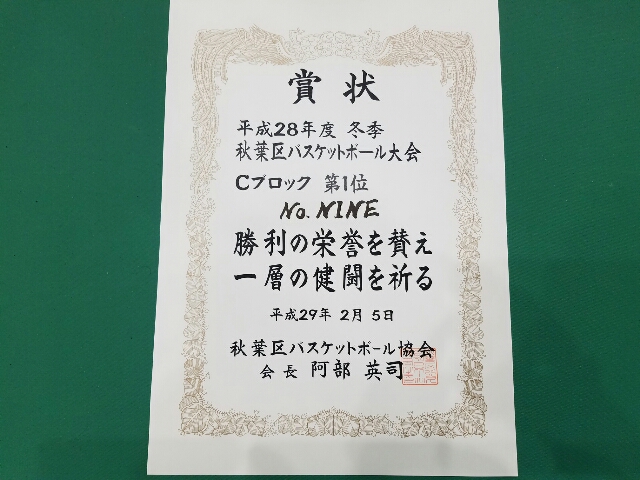 賞状
平成28年度 冬季
秋葉区バスケットボール大会
Cブロック 第1位
No. NINE
勝利の栄誉を賛え
一層の健闘を祈る
平成29年 2月 5日
秋葉区バスケットボール協会
会長 阿部 英司